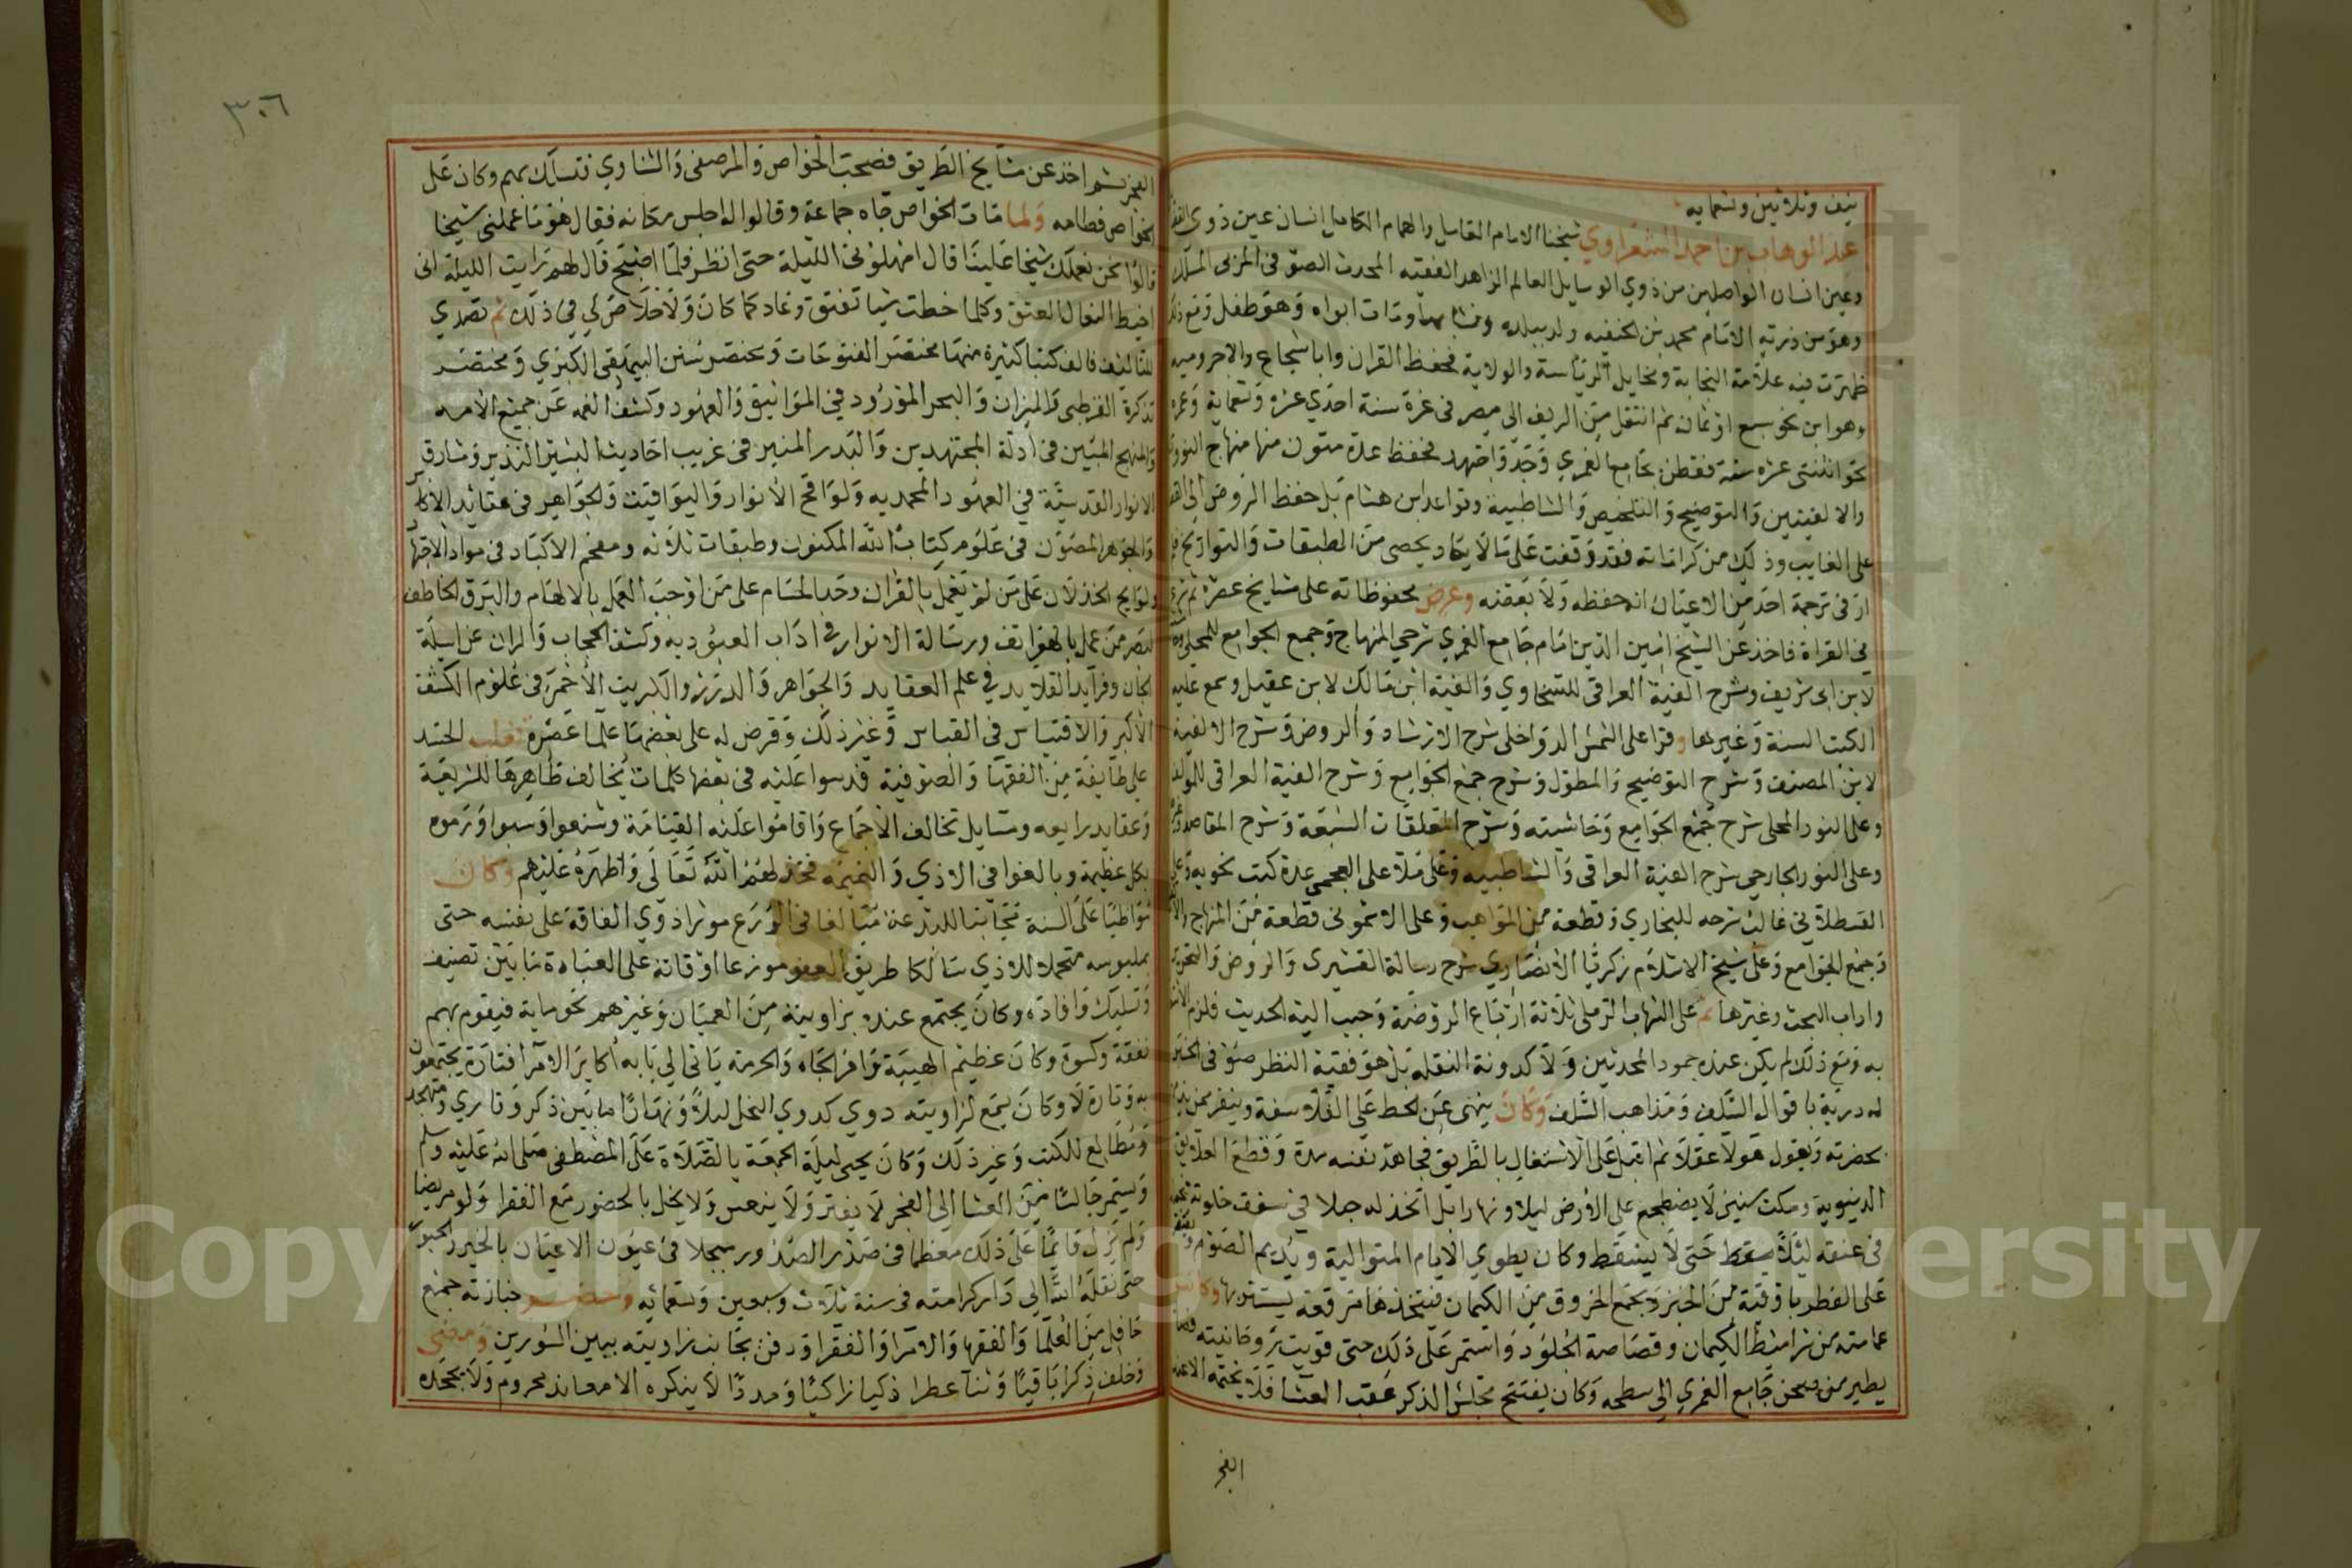 نيف وثلاثين وتسعمايه
عبد الوهاب بن احمد الشعراوي شيخنا الامام العامل والهمام الكامل انسان عين ذوي الفضـ
وعين انسان الواصلين من ذوي الوسايل العالم الزاهد الفقيه المحدث الصوفي المربي المسلك
وهو من ذرية الامام محمد بن الحنفيه ولد ببلده ونشا بها ومات ابواه وهو طفل ومع ذلك
ظهرت فيه علامة النجابة ومخايل الرئاسة والولاية فحفظ القران وابا شجاع والاجروميه
وهو ابن نحو سبع او ثمان ثم انتقل من الريف الى مصر في غرة سنة احدي عشره وتسعماية وعمره
نحو اثنتي عشره سنة فقطن بجامع الغمري وجد واجتهد فحفظ عدة متون منها منهاج النووي
والالفيتين والتوضيح والتلخيص والشاطبية وقواعد ابن هشام بل حفظ الروض الى القضا
على الغايب وذلك من كراماته فقد وقفت على ما لا يكاد يحصى من الطبقات والتواريخ فلم
ار في ترجمة احد من الاعيان انه حفظه ولا بعضه وعرض محفوظاته على مشايخ عصره ثم شرع
في القراة فاخذ عن الشيخ امين الدين امام جامع الغمري شرحي المنهاج وجمع الجوامع للمحلي
لابن ابي شريف وشرح الفية العراقي للسخاوي والفية ابن مالك لابن عقيل وسمع عليه
الكتب الستة وغيرها وقرا على الشمس الدواخلي شرح الارشاد والروض وشرح الالفية
لابن المصنف وشرح التوضيح والمطول وشرح جمع الجوامع وشرح الفية العراقي للمولف
وعلى النور المحلى شرح جمع الجوامع وحاشيته وشرح المعلقات السبعة وشرح المقاصد
وعلى النور الجارحي شرح الفية العراقي والشاطبيه وعلى ملا على العجمي عدة كتب نحويه وعلى
القسطلاني غالب شرحه للبخاري وقطعة من المواهب وعلى الاشموني قطعة من المنهاج
وجمع الجوامع وعلى شيخ الاسلام زكريا الانصاري شرح رسالة القشيري والروض والتحرير
واداب البحث وغيرها ثم على الشهاب الرملي ثلاثة ارباع الروضة وحبب اليه الحديث فلزم
به ومع ذلك لم يكن عنده جمود المحدثين ولا كدونة النقله بل هو فقيه النظر صوفي الخبر
له دربة باقوال السلف ومذاهب الخلف وكان ينهى عن الحط على الفلاسفة وينفر ممن يذمهم
بحضرته ويقول هولا عقلا ثم اقبل على الاشتغال بالطريق فجاهد نفسه مدة وقطع العلايق
الدنيوية ومكث سنين لا يضطجع على الارض ليلا ونهارا بل اتخذ له حبلا في سقف خلوته
في عنقه ليلا حتى لا يسقط وكان يطوي الايام المتوالية ويديم الصوم
على الفطر باوقية من الخبز ويجمع الخروق من الكيمان فيتخذها مرقعة يستتر بها وكانت
عمامته من شراميط الكيمان وقصاصة الجلود واستمر على ذلك حتى قويت روحانيته فصار
يطير من صحن جامع الغمري الى سطحه وكان يفتتح مجلس الذكر عقب العشا فلا يختمه الا عند
الفجر
٣٠٦
الفجر ثم اخذ عن مشايخ الطريق فصحب الخواص والمرصفى والشناوي فتسلك بهم وكان على
الخواص فطامه ولما مات الخواص جاه جماعة وقالوا له اجلس مكانه فقال هو ما عملني شيخا
قالوا نحن نعملك شيخا علينا قال امهلوني الليلة حتى انظر فلما اصبح قال لهم رايت الليلة اني
اخيط النعال العتق وكلما خطت شيا تفتق وعاد كما كان ولا خلاص لي في ذلك ثم تصدي
للتاليف فالف كتبا كثيرة منها مختصر الفتوحات ومختصر سنن البيهقي الكبري ومختصر
تذكرة القرطبي والميزان والبحر المورود في المواثيق والعهود وكشف الغمه عن جميع الامه
والمنهج المبين في ادلة المجتهدين والبدر المنير في غريب احاديث البشير النذير ومشارق
الانوار القدسية في العهود المحمديه ولواقح الانوار واليواقيت والجواهر في عقايد الاكابر
والجوهر المصون في علوم كتاب الله المكنون وطبقات ثلاثه ومفحم الاكباد في مواد الاجتهاد
ولوايح الخذلان على من لم يعمل بالقران وحد الحسام على من اوجب العمل بالالهام والبرق الخاطف
لبصر من عمل بالهواتف ورسالة الانوار في اداب العبوديه وكشف الحجاب والران عن اسيلة
الجان وفرايد القلايد في علم العقايد والجواهر والدرر والكبريت الاحمر في علوم الكشف
الاكبر والاقتباس في القياس وغير ذلك وقرض له على بعضها علما عصره فغلب الحسد
على طايفة من الفقها والصوفية فدسوا عليه في بعضها كلمات يخالف ظاهرها للشريعة
وعقايد زايغه ومسايل تخالف الاجماع واقاموا عليه القيامة وشنعوا وسبوا ورموه
بكل عظيمة وبالغوا في الاذي والنميمه فخذلهم الله تعالى واظهره عليهم وكان
مواظبا على السنة مجانبا للبدعة مبالغا في الورع موثرا ذوي الفاقة على نفسه حتى
بملبوسه متحملا للاذي سالكا طريق العفو موزعا اوقاته على العبادة ما بين تصنيف
وتسليك وافاده وكان يجتمع عنده بزاويته من العميان وغيرهم نحو ماية فيقوم بهم
نفقة وكسوة وكان عظيم الهيبة وافر الجاه والحرمة ياتي الي بابه اكابر الامرا فتارة يجتمعون
به وتارة لا وكان يسمع لزاويته دوي كدوي النحل ليلا ونهارا ما بين ذكر وقاري ومتهجد
ومطالع للكتب وغير ذلك وكان يحيي ليلة الجمعة بالصلاة على المصطفى صلى الله عليه وسلم
ويستمر جالسا من العشا الى الفجر لا يفتر ولا ينعس ولا يخل بالحضور مع الفقرا ولو مريضا
ولم يزل قايما على ذلك معظما في صدر الصدور مبجلا في عيون الاعيان بالخير والحبور
حتى نقله الله الي دار كرامته في سنة ثلاث وسبعين وتسعمائه وحضر جنازته جمع
حافل من العلما والفقها والامرا والفقرا ودفن بجانب زاويته ببين السورين ومضى
وخلف ذكرا باقيا وثنا عطرا ذكيا زاكيا ومددا لا ينكره الا معاند محروم ولا يجحده
Copyright © King Saud University